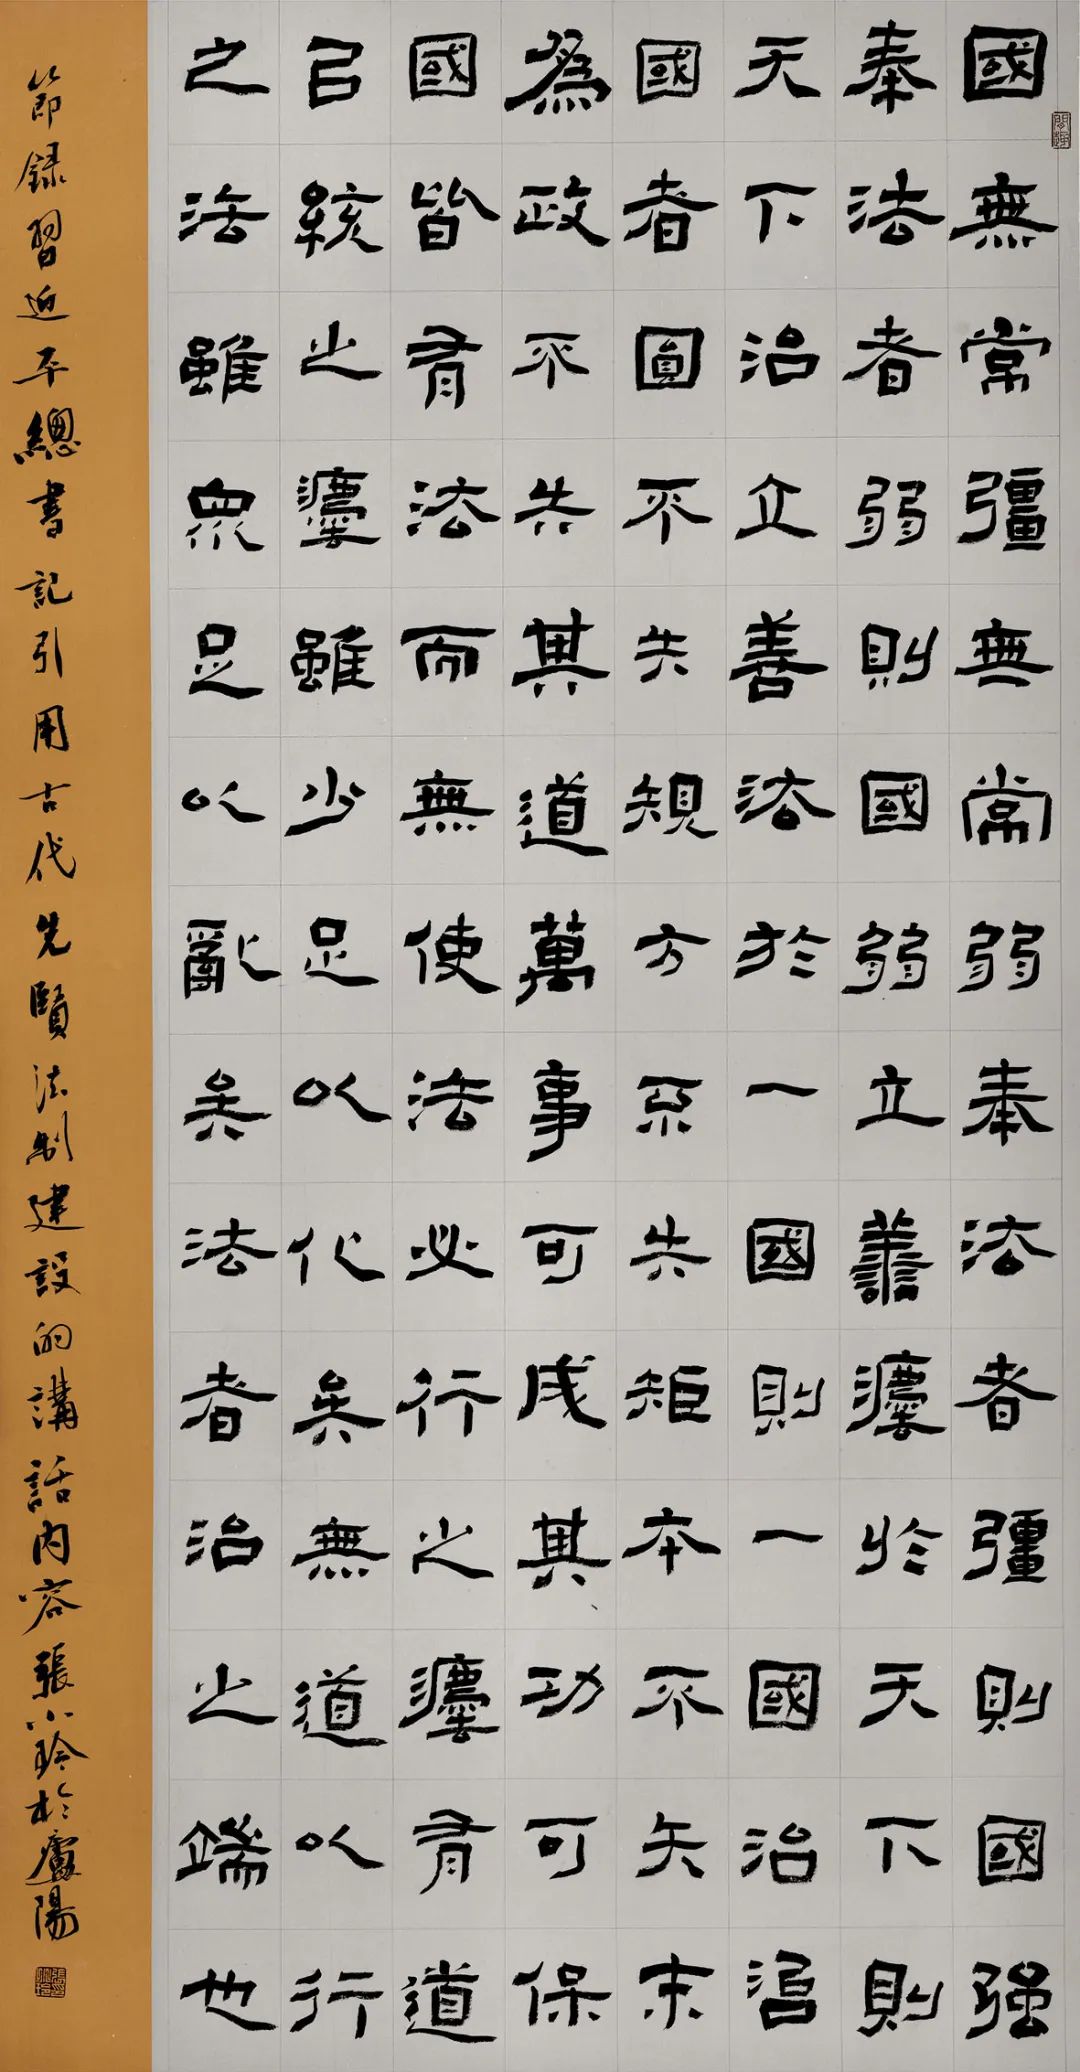 國無常彊無常弱奉法者彊則國强
奉法者弱則國弱立善灋於天下則
天下治立善法於一國則一國治治
國者圓不失規方不失矩本不失末
為政不失其道萬事可成其功可保
國皆有法而無使法必行之灋有道
㠯統之灋雖少足以化矣無道以行
之法雖眾足以亂矣法者治之端也
節録習近平總書記引用古代先賢法制建設的講話内容張小玲於廬陽